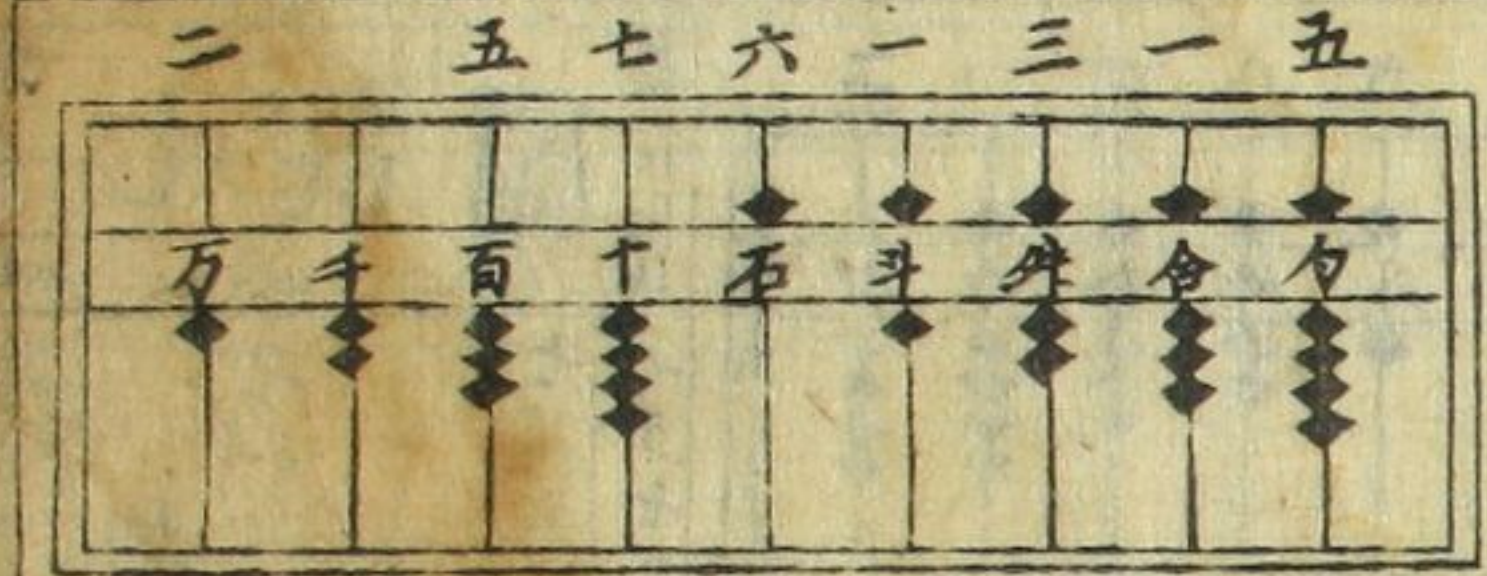 二 五 七 六 一 三 一 五
万 千 百 十 石 斗 升 合 勺